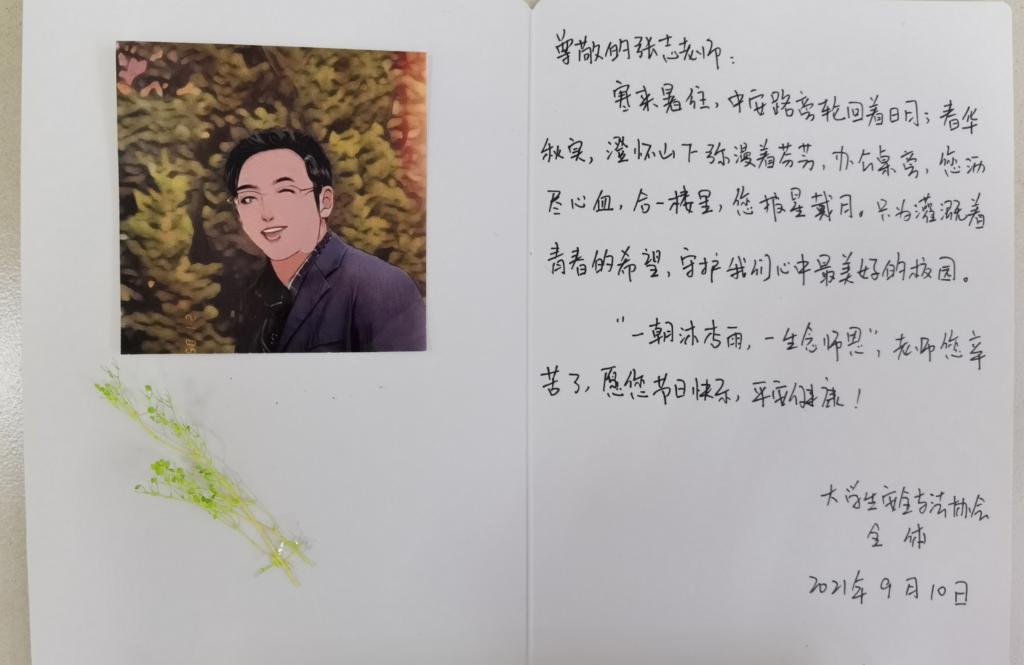 尊敬的张志老师：
寒来暑往，中安路旁轮回着日月；春华
秋实，澄怀山下弥漫着芬芳，办公桌旁，您沥
尽心血，合一楼里，您披星戴月。只为灌溉着
青春的希望，守护我们心中最美好的校园。
“一朝沐杏雨，一生念师恩”，老师您辛
苦了，愿您节日快乐，平安健康！
大学生安全与法协会
全体
2021年9月10日